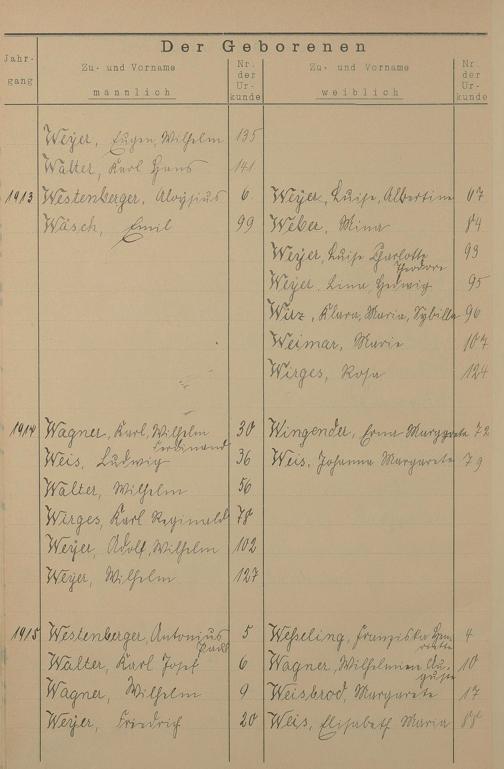 Der Geborenen
Jahr-
gang
Zu- und Vorname
männlich
Nr.
der
Ur-
kunde
Zu- und Vorname
weiblich
Nr.
der
Ur-
kunde
Weyer, Eugen, Wilhelm 135
Walter, Karl Hans 141
1913 Westenberger, Aloysius 6 Weyer, Luise, Albertine 67
Wäsch, Emil 99 Weber, Mina 84
Weyer, Luise Charlotte 93
Theodore
Weyer, Lina, Hedwig 95
Witz, Klara, Maria, Sybille 96
Weimar, Marie 107
Wirges, Rosa 124
1914 Wagner, Karl, Wilhelm 30 Wingender, Erna Margareta 72
Ferdinand
Weis, Ludwig 36 Weis, Johanna Margarete 79
Walter, Wilhelm 56
Wirges, Karl Reginald 78
Weyer, Adolf, Wilhelm 102
Weyer, Wilhelm 127
1915 Westenberger, Antonius 5 Wesseling, Franziska Hen- 4
Paul riette
Walter, Karl Josef 6 Wagner, Wilhelmine Au- 10
guste
Wagner, Wilhelm 9 Weisbrod, Margarete 17
Weyer, Friedrich 20 Weis, Elisabeth Maria 88